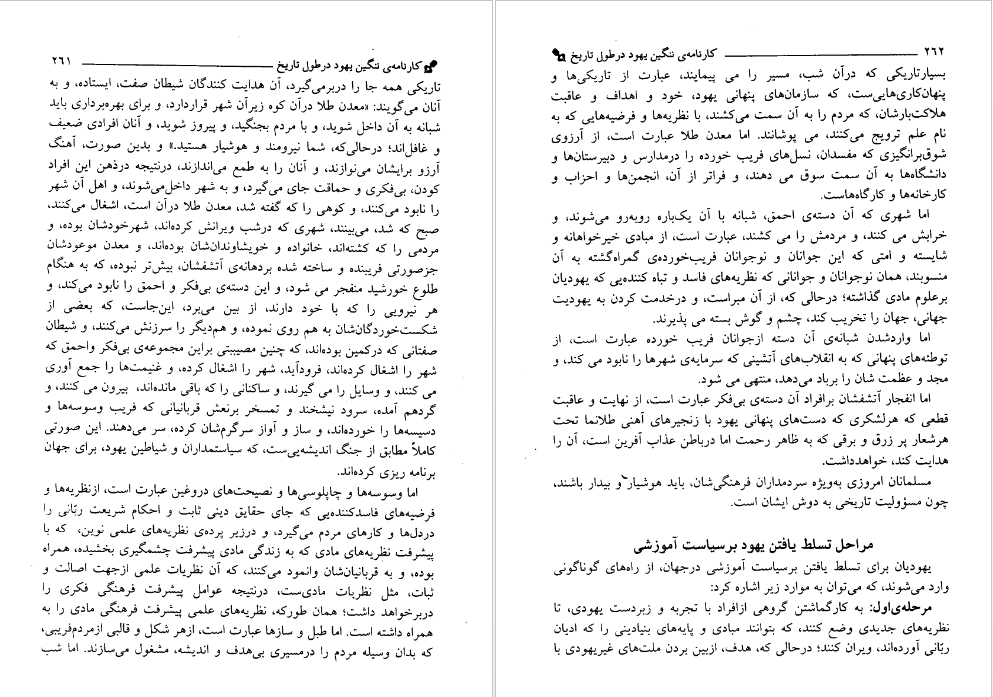 کارنامه‌ی ننگین یهود در طول تاریخ ۲۶۱
تاریکی همه جا را دربرمی‌گیرد، آن هدایت کنندگان شیطان صفت، ایستاده، و به
آنان می‌گویند: «معدن طلا درآن کوه زیرآن شهر قراردارد، و برای بهره‌برداری باید
شبانه به آن داخل شوید، و با مردم بجنگید، و پیروز شوید، و آنان افرادی ضعیف
و غافل‌اند؛ درحالی‌که، شما نیرومند و هوشیار هستید.» و بدین صورت، آهنگ
آرزو برایشان می‌نوازند، و آنان را به طمع می‌اندازند، درنتیجه درذهن این افراد
کودن، بی‌فکری و حماقت جای می‌گیرد، و به شهر داخل‌می‌شوند، و اهل آن شهر
را نابود می‌کنند، و کوهی را که گفته شد، معدن طلا درآن است، اشغال می‌کنند،
صبح که شد، می‌بینند، شهری که درشب ویرانش کرده‌اند، شهرخودشان بوده، و
مردمی را که کشته‌اند، خانواده و خویشاوندان‌شان بوده‌اند، و معدن موعودشان
جزصورتی فریبنده و ساخته شده بردهانه‌ی آتشفشان، بیش‌تر نبوده، که به هنگام
طلوع خورشید منفجر می شود، و این دسته‌ی بی‌فکر و احمق را نابود می‌کند، و
هر نیرویی را که با خود دارند، از بین می‌برد، این‌جاست، که بعضی از
شکست‌خوردگان‌شان به هم روی نموده، و هم‌دیگر را سرزنش می‌کنند، و شیطان
صفتانی که درکمین بوده‌اند، که چنین مصیبتی براین مجموعه‌ی بی‌فکر واحمق که
شهر را اشغال کرده‌اند، فرودآید، شهر را اشغال کرده، و غنیمت‌ها را جمع آوری
می کنند، و وسایل را می گیرند، و ساکنانی را که باقی مانده‌اند، بیرون می کنند، و
گردهم آمده، سرود نیشخند و تمسخر برنعش قربانیانی که فریب وسوسه‌ها و
دسیسه‌ها را خورده‌اند، و ساز و آواز سرگرم‌شان کرده، سر می‌دهند. این صورتی
کاملاً مطابق از جنگ اندیشه‌یی‌ست، که سیاستمداران و شیاطین یهود، برای جهان
برنامه ریزی کرده‌اند.
اما وسوسه‌ها و چاپلوسی‌ها و نصیحت‌های دروغین عبارت است، ازنظریه‌ها و
فرضیه‌های فاسدکننده‌یی که جای حقایق دینی ثابت و احکام شریعت ربّانی را
دردل‌ها و کارهای مردم می‌گیرد، و درزیر پرده‌ی نظریه‌های علمی نوین، که با
پیشرفت نظریه‌های مادی که به زندگی مادی پیشرفت چشمگیری بخشیده، همراه
بوده، و به قربانیان‌شان وانمود می‌کنند، که آن نظریات علمی ازجهت اصالت و
ثبات، مثل نظریات مادی‌ست، درنتیجه عوامل پیشرفت فرهنگی فکری را
دربرخواهد داشت؛ همان طورکه، نظریه‌های علمی پیشرفت فرهنگی مادی را به
همراه داشته است. اما طبل و سازها عبارت است، ازهر شکل و قالبی ازمردم‌فریبی،
که بدان وسیله مردم را درمسیری بی‌هدف و اندیشه، مشغول می‌سازند. اما شب
۲۶۲ کارنامه‌ی ننگین یهود در طول تاریخ
بسیارتاریکی که درآن شب، مسیر را می پیمایند، عبارت از تاریکی‌ها و
پنهان‌کاری‌هایی‌ست، که سازمان‌های پنهانی یهود، خود و اهداف و عاقبت
هلاکت‌بارشان، که مردم را به آن سمت می‌کشند، با نظریه‌ها و فرضیه‌هایی که به
نام علم ترویج می‌کنند، می پوشانند. اما معدن طلا عبارت است، از آرزوی
شوق‌برانگیزی که مفسدان، نسل‌های فریب خورده را درمدارس و دبیرستان‌ها و
دانشگاه‌ها به آن سمت سوق می دهند، و فراتر از آن، انجمن‌ها و احزاب و
کارخانه‌ها و کارگاه‌هاست.
اما شهری که آن دسته‌ی احمق، شبانه با آن یک‌باره روبه‌رو می‌شوند، و
خرابش می کنند، و مردمش را می کشند، عبارت است، از مبادی خیرخواهانه و
شایسته و امتی که این جوانان و نوجوانان فریب‌خورده‌ی گمراه‌گشته به آن
منسوبند، همان نوجوانان و جوانانی که نظریه‌های فاسد و تباه کننده‌یی که یهودیان
برعلوم مادی گذاشته؛ درحالی که، از آن مبراست، و درخدمت کردن به یهودیت
جهانی، جهان را تخریب کند، چشم و گوش بسته می پذیرند.
اما واردشدن شبانه‌ی آن دسته ازجوانان فریب خورده عبارت است، از
توطئه‌های پنهانی که به انقلاب‌های آتشینی که سرمایه‌ی شهرها را نابود می کند، و
مجد و عظمت شان را برباد می‌دهد، منتهی می شود.
اما انفجار آتشفشان برافراد آن دسته‌ی بی‌فکر عبارت است، از نهایت و عاقبت
قطعی که هرلشکری که دست‌های پنهانی یهود با زنجیرهای آهنی طلانما تحت
هرشعار پر زرق و برقی که به ظاهر رحمت اما درباطن عذاب آفرین است، آن را
هدایت کند، خواهدداشت.
مسلمانان امروزی به‌ویژه سردمداران فرهنگی‌شان، باید هوشیار و بیدار باشند،
چون مسؤولیت تاریخی به دوش ایشان است.
مراحل تسلط یافتن یهود برسیاست آموزشی
یهودیان برای تسلط یافتن برسیاست آموزشی درجهان، از راه‌های گوناگونی
وارد می‌شوند، که می‌توان به موارد زیر اشاره کرد:
مرحله‌ی‌اول: به کارگماشتن گروهی ازافراد با تجربه و زبردست یهودی، تا
نظریه‌های جدیدی وضع کنند، که بتوانند مبادی و پایه‌های بنیادینی را که ادیان
ربّانی آورده‌اند، ویران کنند؛ درحالی که، هدف، ازبین بردن ملت‌های غیریهودی با